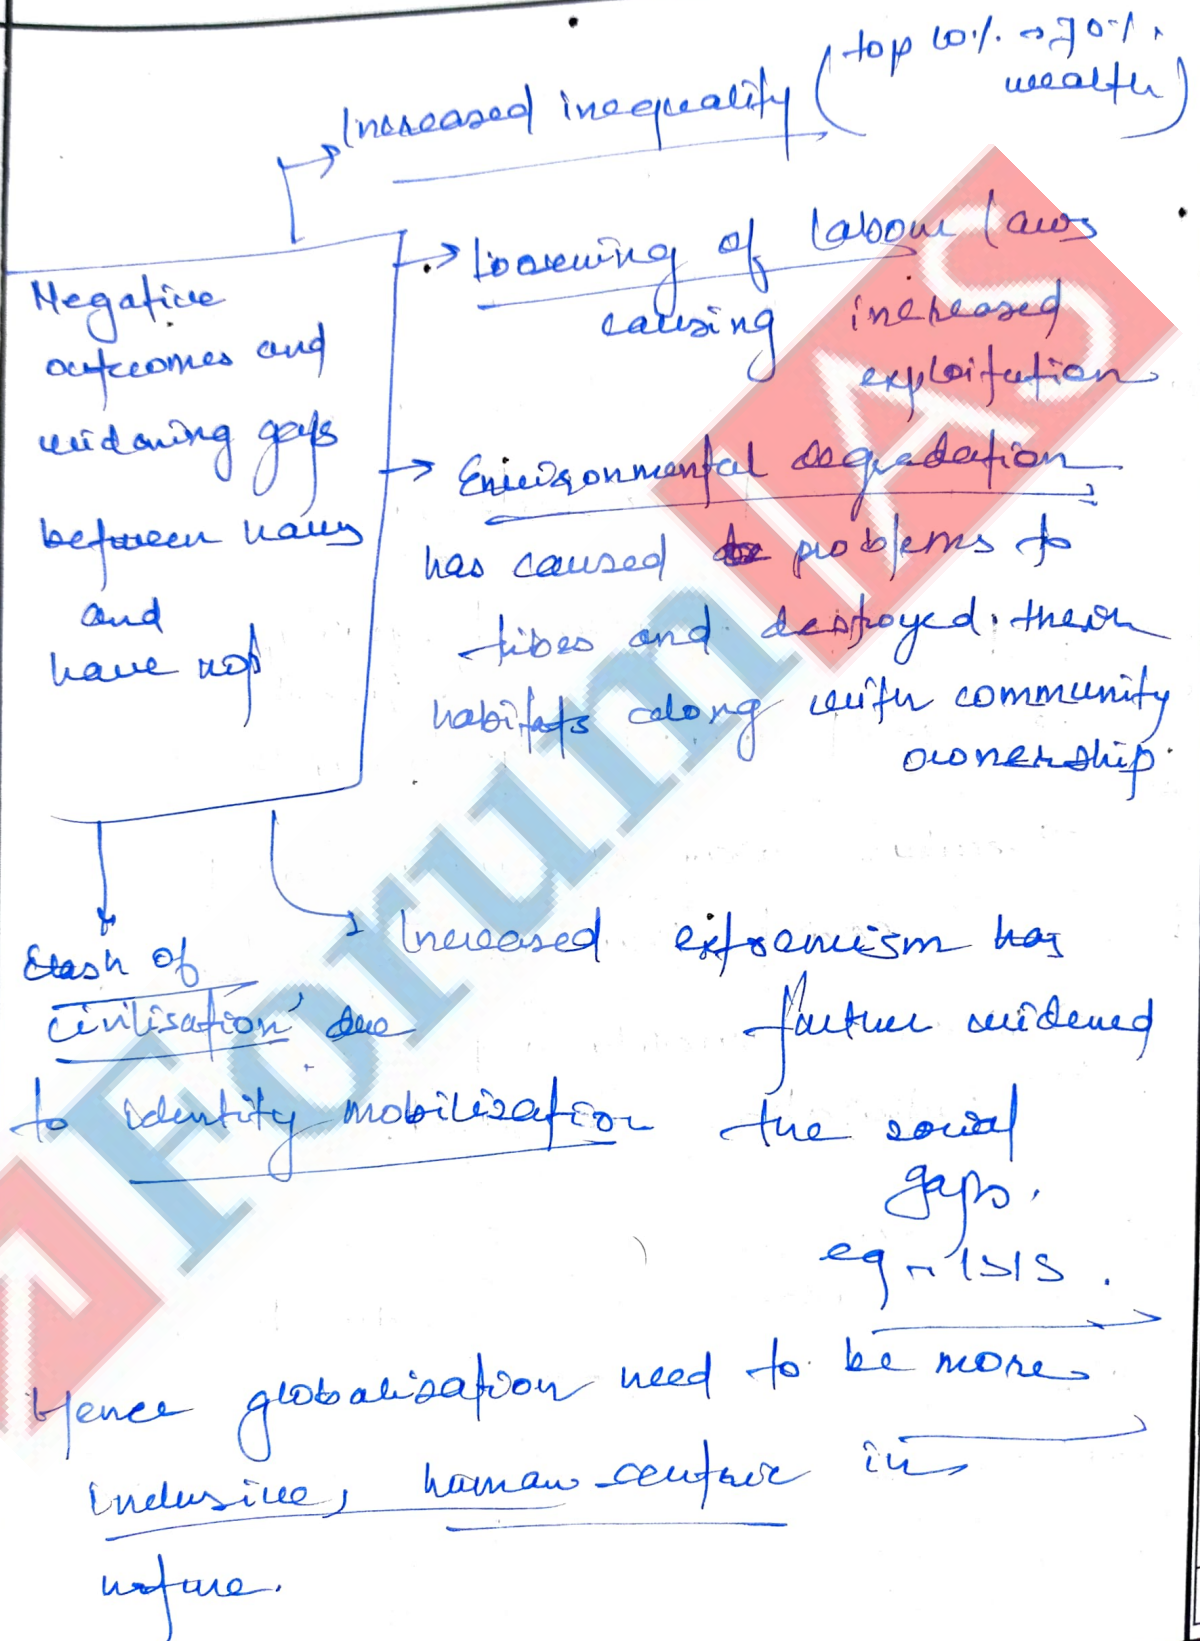 Increased inequality (top 10% → 70% wealth)
Negative
outcomes and
widening gaps
between haves
and
have not
→ Loosening of labour laws
causing increased
exploitation
→ Environmental degradation
has caused problems to
tibes and destroyed their
habitats along with community
ownership.
Clash of
civilisation' due
to identity mobilization
Increased extremism has
further widened
the social
gaps.
eg - ISIS.
Hence globalisation need to be more
inclusive, human-centric in
nature.
Forum IAS